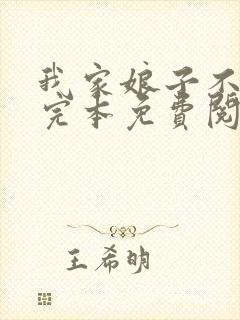 我家娘子不
完本免費閱
王希明